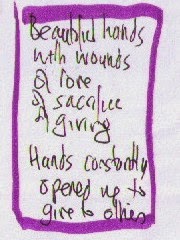 Beautiful hands
with wounds
of love
of sacrifice
of giving
Hands constantly
opened up to
give to others